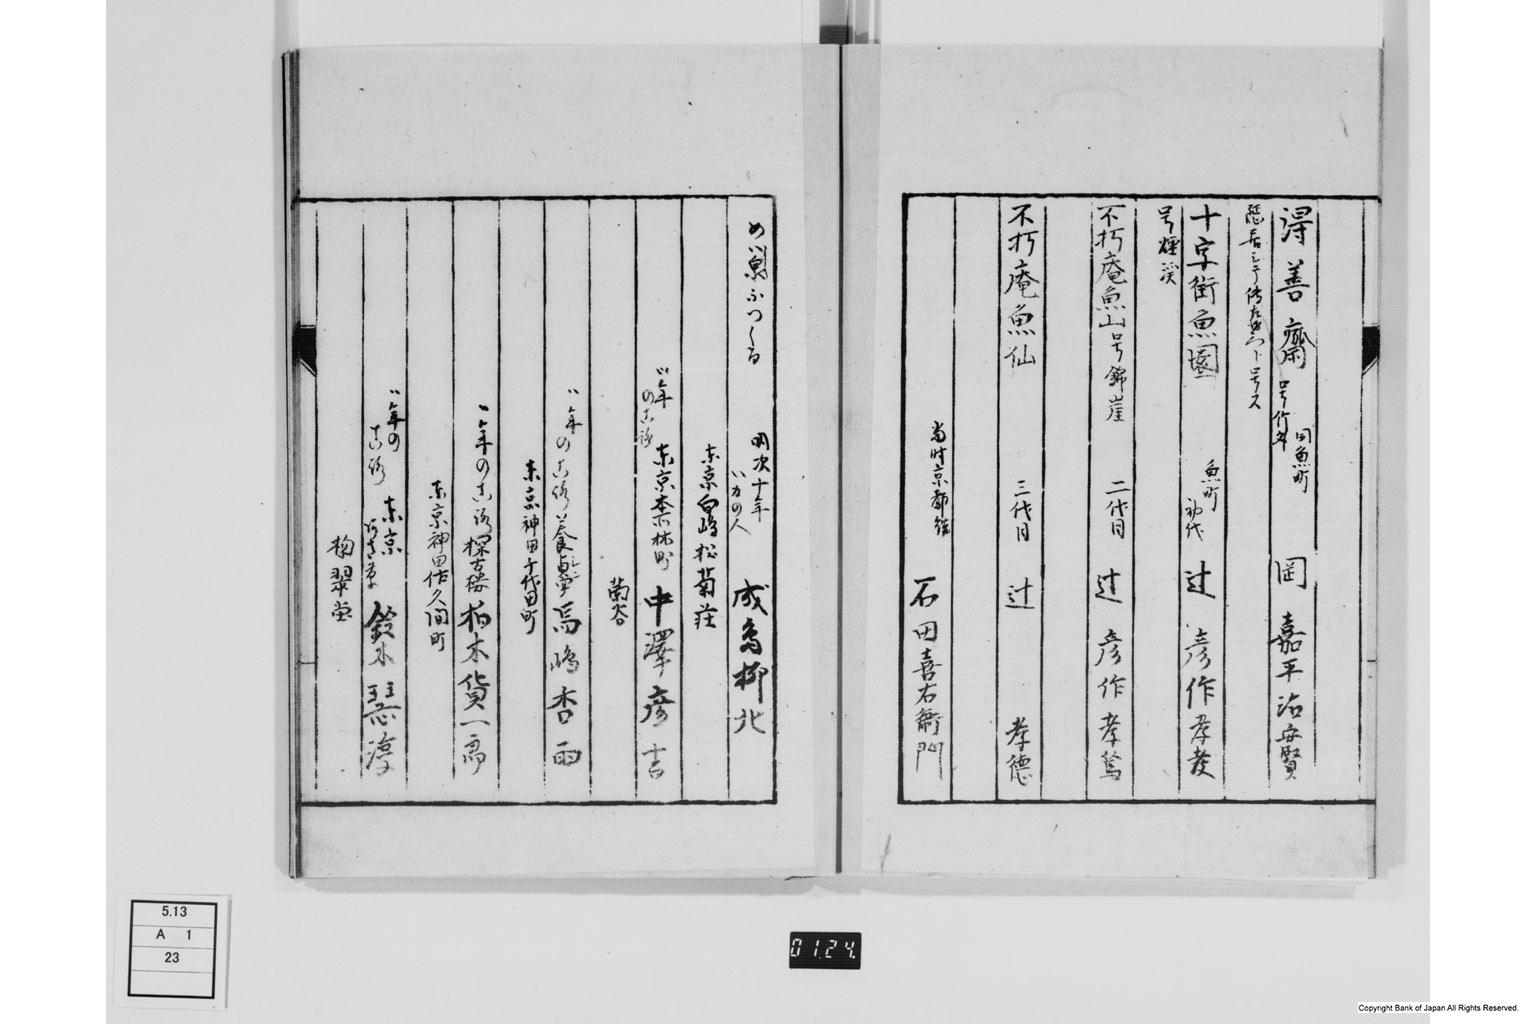 得善齋 号竹外 同魚町 岡 嘉平治安賢
隠居シテ傳左衛門ト号ス
十字街魚園 魚町 初代 辻 彦作孝友
号煙溪
不朽庵魚山 号錦崖 二代目 辻 彦作孝篤
不朽庵魚仙 三代目 辻 孝德
当時京都住 石田喜右衛門
明次十年 いカの人 成島柳北
東京向嶋松菊荘
年のころ 東京本林町 中澤彦吉
菊谷
年のころ 養真堂 馬嶋杏雨
東京神田千代田町
年のころ 探古楼 柏木貨一郎
東京神田佐久間町
年のころ 東京 鈴木
掬翠堂
5.13
A 1
23
01.24.
Copyright Bank of Japan All Rights Reserved.